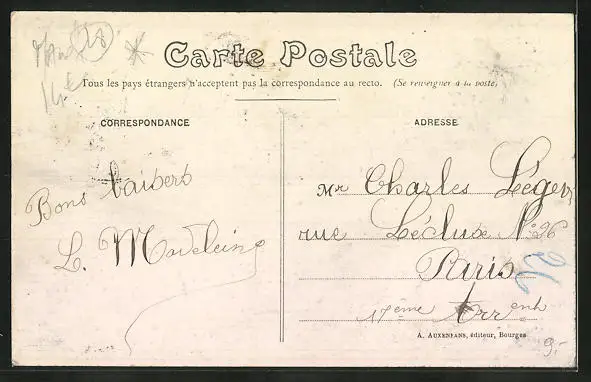 14 €
Carte Postale
Tous les pays étrangers n'acceptent pas la correspondance au recto. (Se renseigner à la poste)
CORRESPONDANCE
ADRESSE
Bons baisers
L. Madeleine
Mr Charles Léger
rue Lécluse No 26
Paris
17ème Arr
A. AUXENFANS, éditeur, Bourges
9.-